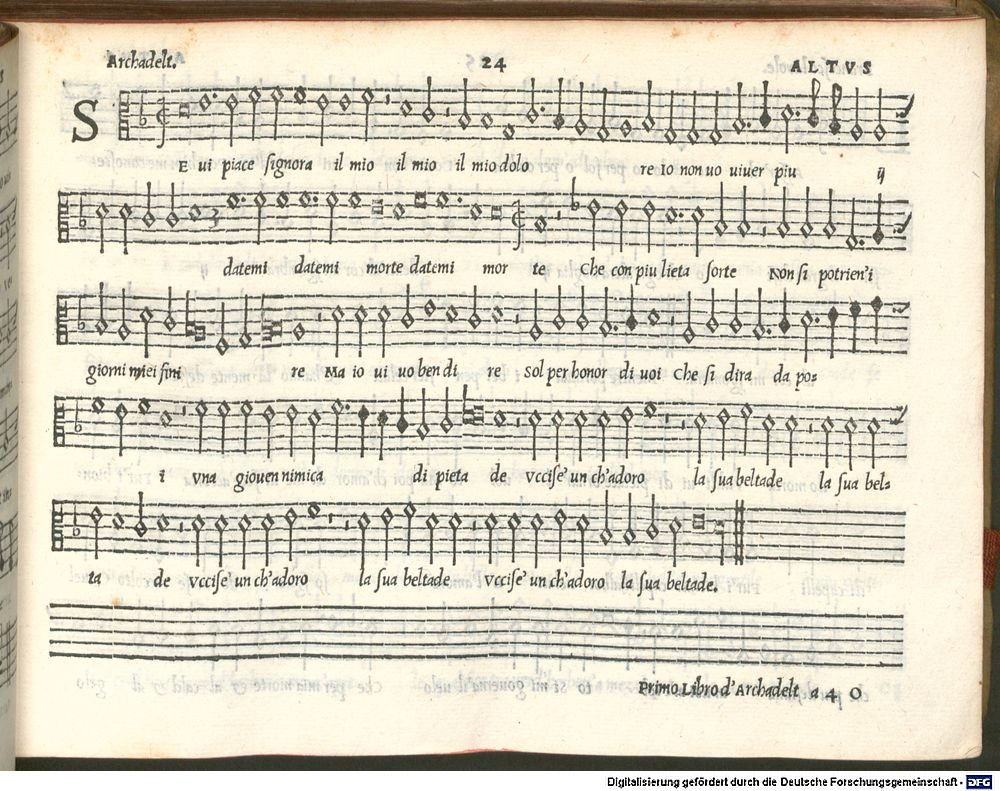 Archadelt. 24 ALTVS
SE ui piace signora il mio il mio il mio dolo re io non uo uiuer piu ij
datemi datemi morte datemi mor te Che con piu lieta sorte Non si potrien'i
giorni miei fini re Ma io ui uo ben di re sol per honor di uoi Che si dira da poi
i vna giouen nimica di pieta de vccise'un ch'adoro la sua beltade la sua bel-
ta de vccise'un ch'adoro la sua beltade vccise'un ch'adoro la sua beltade.
Primo Libro d'Archadelt a 4 O
Digitalisierung gefördert durch die Deutsche Forschungsgemeinschaft - DFG